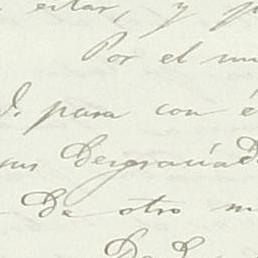 estar, y
Por el
d. para con é
sus Desgraciad
De otro